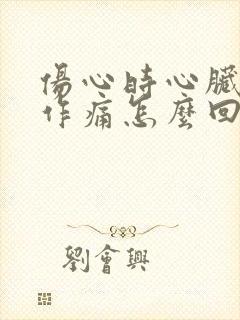 傷心時心臟
作痛怎麼回
劉會興